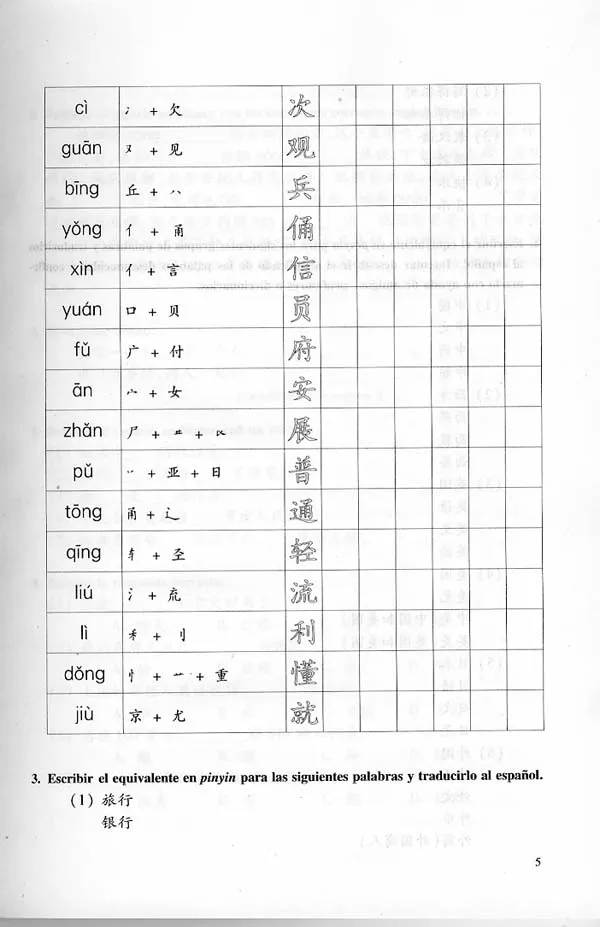 cì 冫 + 欠 次
guān 又 + 见 观
bīng 丘 + 八 兵
yǒng 亻 + 甬 俑
xìn 亻 + 言 信
yuán 口 + 贝 员
fǔ 广 + 付 府
ān 宀 + 女 安
zhǎn 尸 + 龷 + 𧘇 展
pǔ 丷 + 亚 + 日 普
tōng 甬 + 辶 通
qīng 车 + 𢀖 轻
liú 氵 + 㐬 流
lì 禾 + 刂 利
dǒng 忄 + 艹 + 重 懂
jiù 京 + 尤 就
3. Escribir el equivalente en pinyin para las siguientes palabras y traducirlo al español.
(1) 旅行
银行
5